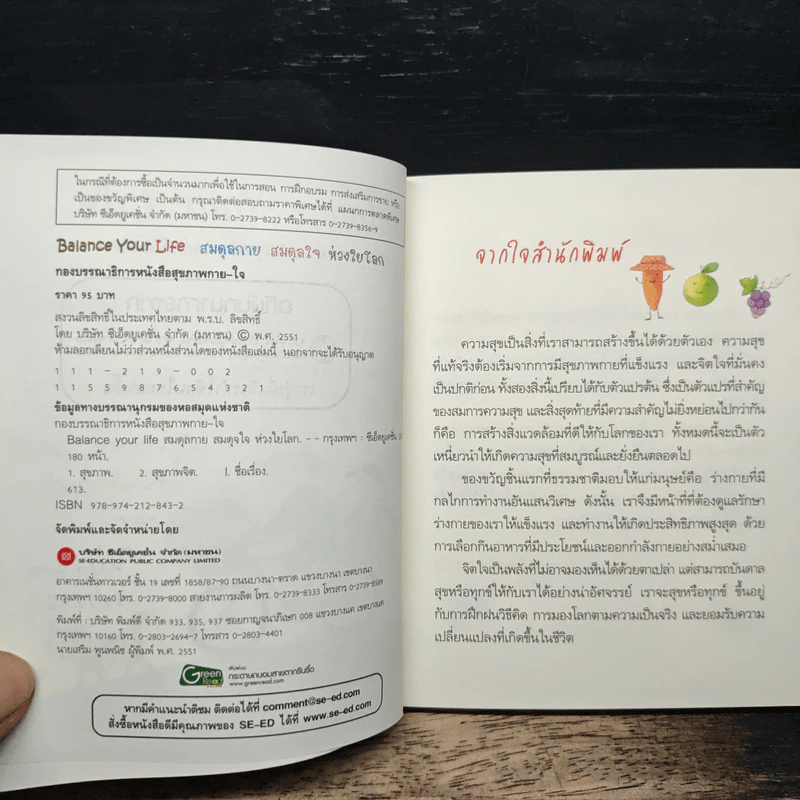 ในกรณีที่ต้องการซื้อเป็นจำนวนมากเพื่อใช้ในการสอน การฝึกอบรม การส่งเสริมการขาย หรือ
เป็นของขวัญพิเศษ เป็นต้น กรุณาติดต่อสอบถามราคาพิเศษได้ที่ แผนกการตลาดพิเศษ
บริษัท ซีเอ็ดยูเคชั่น จำกัด (มหาชน) โทร. 0-2739-8222 หรือโทรสาร 0-2739-8356-9
Balance Your Life สมดุลกาย สมดุลใจ ห่วงใยโลก
กองบรรณาธิการหนังสือสุขภาพกาย-ใจ
ราคา 95 บาท
สงวนลิขสิทธิ์ในประเทศไทยตาม พ.ร.บ. ลิขสิทธิ์
โดย บริษัท ซีเอ็ดยูเคชั่น จำกัด (มหาชน) © พ.ศ. 2551
ห้ามลอกเลียนไม่ว่าส่วนหนึ่งส่วนใดของหนังสือเล่มนี้ นอกจากจะได้รับอนุญาต
1 1 1 - 2 1 9 - 0 0 2
1 1 5 5 9 8 7 6 5 4 3 2 1
ข้อมูลทางบรรณานุกรมของหอสมุดแห่งชาติ
กองบรรณาธิการหนังสือสุขภาพกาย-ใจ
Balance your life สมดุลกาย สมดุจใจ ห่วงใยโลก. -- กรุงเทพฯ : ซีเอ็ดยูเคชั่น
180 หน้า.
1. สุขภาพ. 2. สุขภาพจิต. I. ชื่อเรื่อง.
613.
ISBN 978-974-212-843-2
จัดพิมพ์และจัดจำหน่ายโดย
บริษัท ซีเอ็ดยูเคชั่น จำกัด (มหาชน)
SE-EDUCATION PUBLIC COMPANY LIMITED
อาคารเนชั่นทาวเวอร์ ชั้น 19 เลขที่ 1858/87-90 ถนนบางนา-ตราด แขวงบางนา เขตบางนา
กรุงเทพฯ 10260 โทร. 0-2739-8000 สายงานการผลิต โทร. 0-2739-8333 โทรสาร 0-2739-8589
พิมพ์ที่ : บริษัท พิมพ์ดี จำกัด 933, 935, 937 ซอยกาญจนาภิเษก 008 แขวงบางแค เขตบางแค
กรุงเทพฯ 10160 โทร. 0-2803-2694-7 โทรสาร 0-2803-4401
นายเสริม พูนพนิช ผู้พิมพ์ พ.ศ. 2551
Green Read
พิมพ์บน
กระดาษถนอมสายตากรีนรี้ด
www.greenread.com
หากมีคำแนะนำติชม ติดต่อได้ที่ comment@se-ed.com
สั่งซื้อหนังสือดีมีคุณภาพของ SE-ED ได้ที่ www.se-ed.com
จากใจสำนักพิมพ์
ความสุขเป็นสิ่งที่เราสามารถสร้างขึ้นได้ด้วยตัวเอง ความสุข
ที่แท้จริงต้องเริ่มจากการมีสุขภาพกายที่แข็งแรง และจิตใจที่มั่นคง
เป็นปกติก่อน ทั้งสองสิ่งนี้เปรียบได้กับตัวแปรต้น ซึ่งเป็นตัวแปรที่สำคัญ
ของสมการความสุข และสิ่งสุดท้ายที่มีความสำคัญไม่ยิ่งหย่อนไปกว่ากัน
ก็คือ การสร้างสิ่งแวดล้อมที่ดีให้กับโลกของเรา ทั้งหมดนี้จะเป็นตัว
เหนี่ยวนำให้เกิดความสุขที่สมบูรณ์และยั่งยืนตลอดไป
ของขวัญชิ้นแรกที่ธรรมชาติมอบให้แก่มนุษย์คือ ร่างกายที่มี
กลไกการทำงานอันแสนวิเศษ ดังนั้น เราจึงมีหน้าที่ที่ต้องดูแลรักษา
ร่างกายของเราให้แข็งแรง และทำงานให้เกิดประสิทธิภาพสูงสุด ด้วย
การเลือกกินอาหารที่มีประโยชน์และออกกำลังกายอย่างสม่ำเสมอ
จิตใจเป็นพลังที่ไม่อาจมองเห็นได้ด้วยตาเปล่า แต่สามารถบันดาล
สุขหรือทุกข์ให้กับเราได้อย่างน่าอัศจรรย์ เราจะสุขหรือทุกข์ ขึ้นอยู่
กับการฝึกฝนวิธีคิด การมองโลกตามความเป็นจริง และยอมรับความ
เปลี่ยนแปลงที่เกิดขึ้นในชีวิต